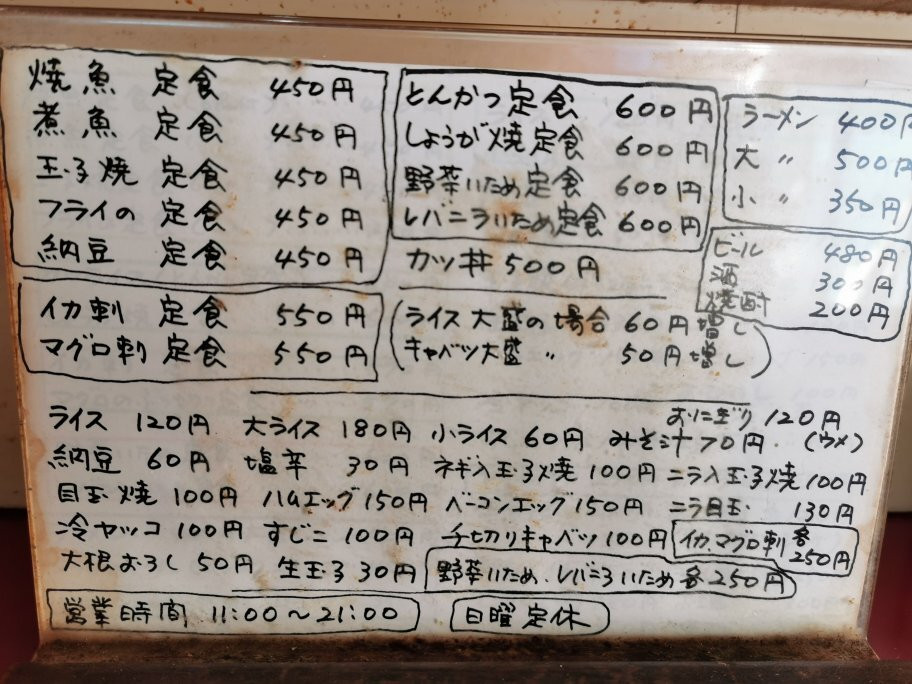 焼魚 定食 450円
煮魚 定食 450円
玉子焼 定食 450円
フライの 定食 450円
納豆 定食 450円
イカ刺 定食 550円
マグロ刺 定食 550円
とんかつ定食 600円
しょうが焼定食 600円
野菜いため定食 600円
レバニラいため定食 600円
カツ丼 500円
(ライス大盛の場合 60円増し
キャベツ大盛 〃 50円増し)
ラーメン 400円
大 〃 500円
小 〃 350円
ビール 480円
酒 300円
焼酎 200円
ライス 120円 大ライス 180円 小ライス 60円 みそ汁70円 おにぎり 120円
(ウメ)
納豆 60円 塩辛 30円 ネギ入玉子焼 100円 ニラ入玉子焼 100円
目玉焼 100円 ハムエッグ 150円 ベーコンエッグ 150円 ニラ目玉 130円
冷ヤッコ 100円 すじこ 100円 千切りキャベツ 100円 イカ、マグロ刺 各250円
大根おろし 50円 生玉子 30円 野菜いため、レバニラいため 各250円
営業時間 11:00〜21:00 日曜定休